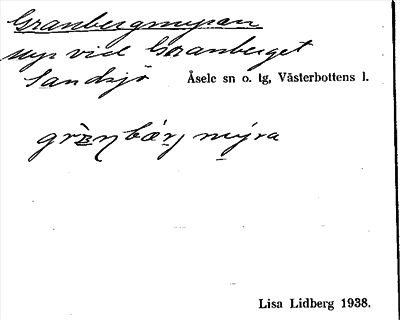 Granbergmyran
myr vid Granberget
Sandsjö Åsele sn o. tg, Västerbottens l.
Lisa Lidberg 1938.